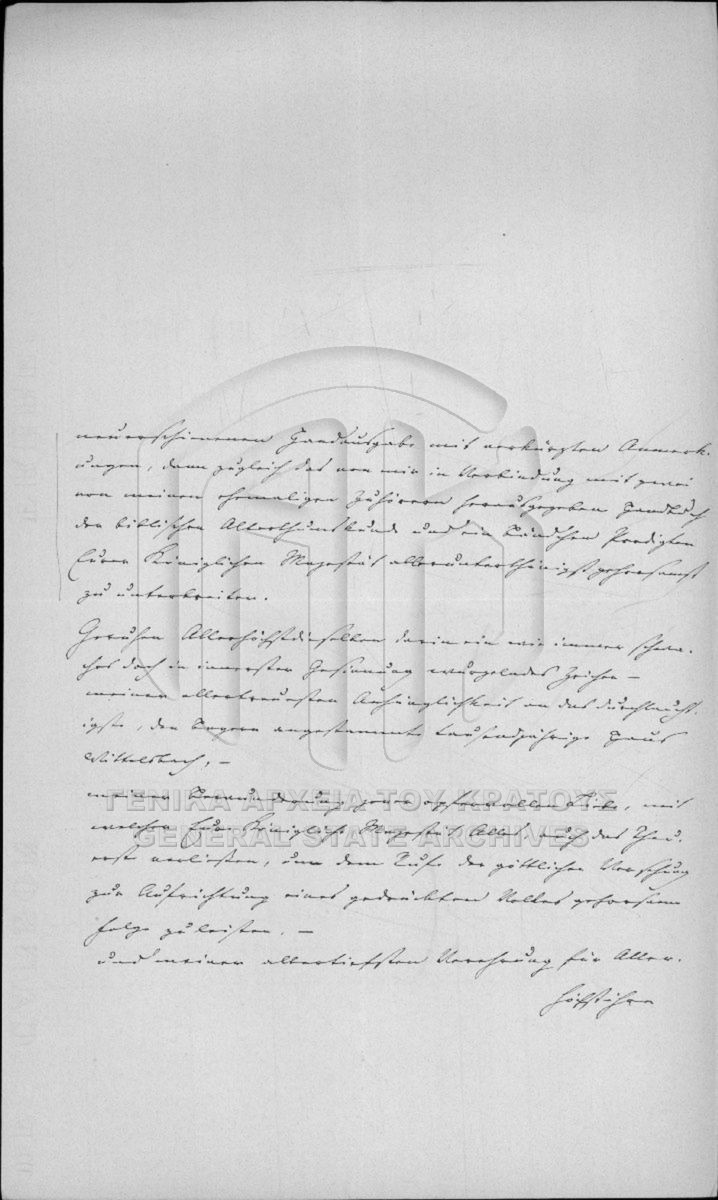 neuerschienenen Handausgabe mit verkürzten Anmerk-
ungen, dann zugleich das von mir in Verbindung mit zwei
von meinen ehemaligen Zuhörern herausgegeben Handbuch
der biblischen Alterthumskunde und ein Bändchen Predigten
Eurer Königlichen Majestät allerunterthänigst gehorsamst
zu unterbreiten.
Geruhen Allerhöchstdieselben darin ein wie immer schwa-
ches doch in innerster Gesinnung wurzelndes Zeichen –
meiner allertreuesten Anhänglichkeit an das durchlaucht-
igste, den Bayern angestammte tausendjährige Haus
Wittelsbach, –
meiner Bewunderung jener opfervollen Liebe, mit
welcher Eure Königliche Majestät Alles auch das Theu-
erste verließen, um dem Rufe der göttlichen Vorsehung
zur Aufrichtung eines gedrückten Volkes gehorsam
Folge zu leisten, –
und meiner allertiefsten Verehrung für Aller-
höchstihre
ΓΕΝΙΚΑ ΑΡΧΕΙΑ ΤΟΥ ΚΡΑΤΟΥΣ
GENERAL STATE ARCHIVES